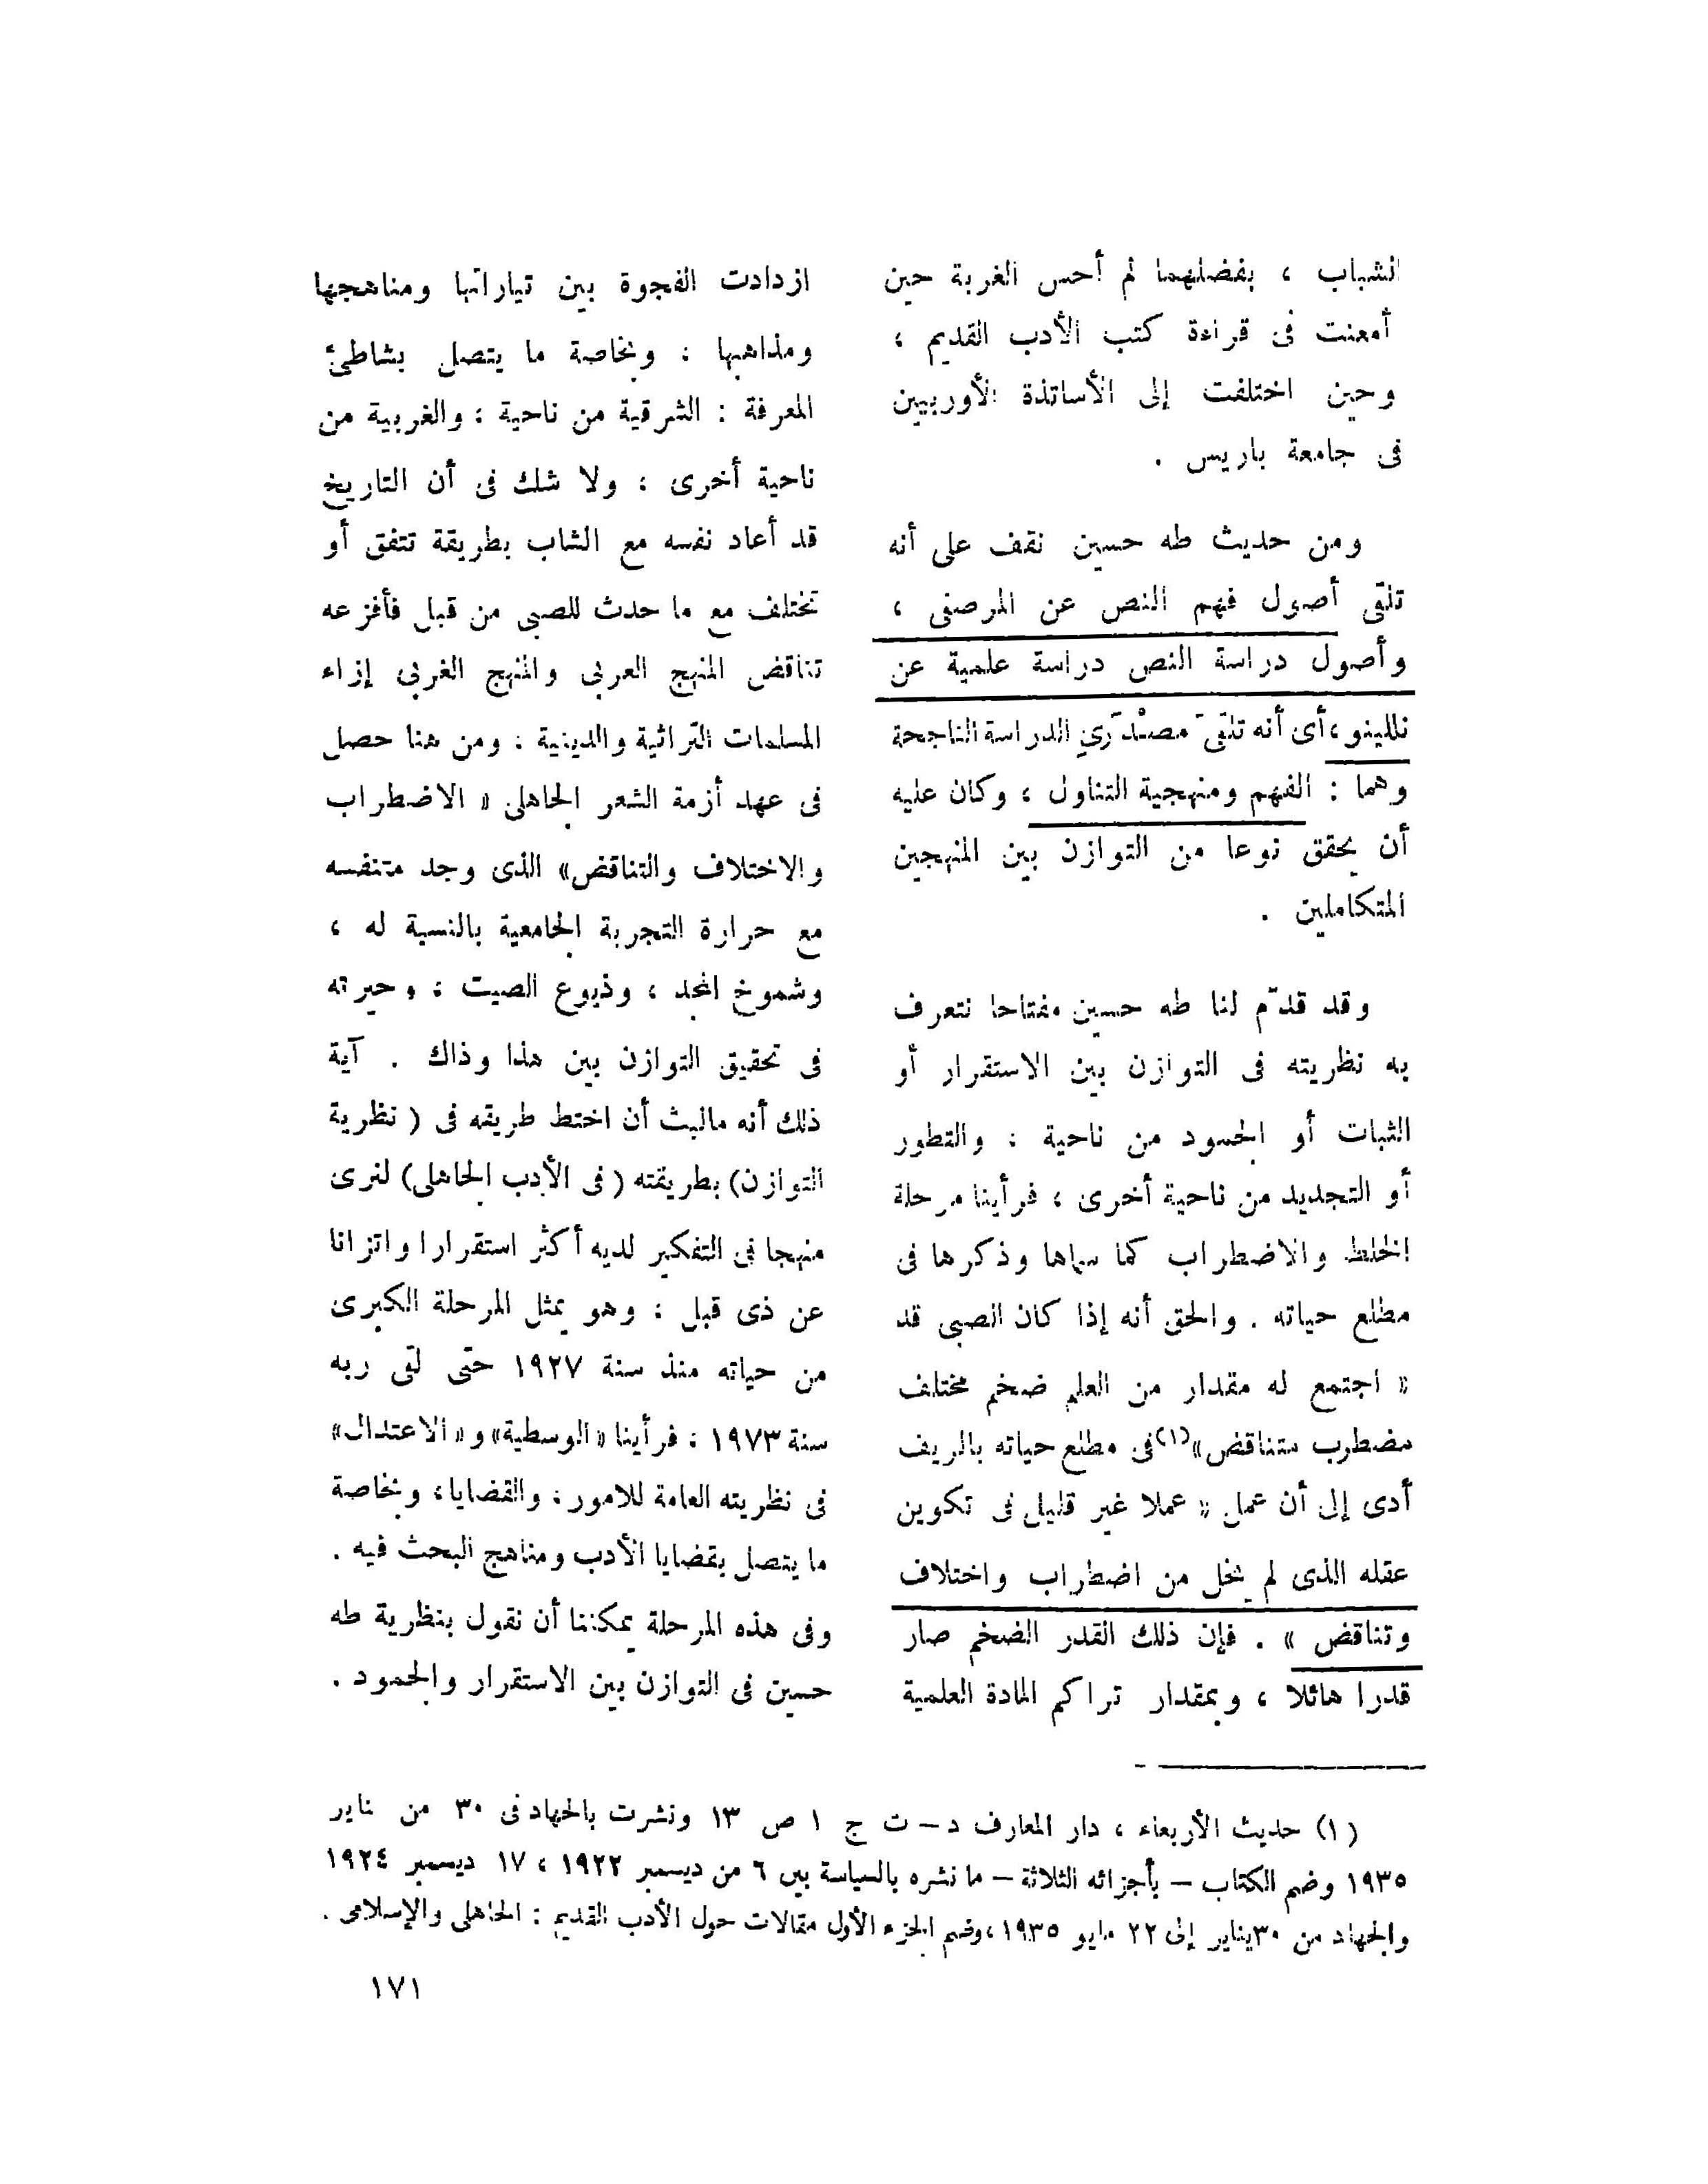 الشباب ، بفضلهما لم أحس الغربة حين
أمعنت فى قراءة كتب الأدب القديم ،
وحين اختلفت إلى الأساتذة الأوربيين
فى جامعة باريس .
ومن حديث طه حسين نقف على أنه
تلقّى أصول فهم النص عن المرصفى ،
وأصول دراسة النص دراسة علمية عن
نللينو ، أى أنه تلقى مصْدَرَي الدراسة الناجحة
وهما : الفهم ومنهجية التناول ، وكان عليه
أن يحقق نوعا من التوازن بين المنهجين
المتكاملين .
وقد قدّم لنا طه حسين مفتاحا نتعرف
به نظريته فى التوازن بين الاستقرار أو
الثبات أو الجمود من ناحية ، والتطور
أو التجديد من ناحية أخرى ، فرأينا مرحلة
الخلط والاضطراب كما سماها وذكرها فى
مطلع حياته . والحق أنه إذا كان الصبى قد
« اجتمع له مقدار من العلم ضخم مختلف
مضطرب متناقض »(١) فى مطلع حياته بالريف
أدى إلى أن عمل « عملا غير قليل فى تكوين
عقله الذى لم يخل من اضطراب واختلاف
وتناقض » . فإن ذلك القدر الضخم صار
قدرا هائلا ، وبمقدار تراكم المادة العلمية
ازدادت الفجوة بين تياراتها ومناهجها
ومذاهبها ، وبخاصة ما يتصل بشاطئ
المعرفة : الشرقية من ناحية ، والغربية من
ناحية أخرى ، ولا شك فى أن التاريخ
قد أعاد نفسه مع الشاب بطريقة تتفق أو
تختلف مع ما حدث للصبى من قبل فأفزعه
تناقض المنهج العربى والمنهج الغربى إزاء
المسلمات التراثية والدينية ، ومن هنا حصل
فى عهد أزمة الشعر الجاهلى « الاضطراب
والاختلاف والتناقض» الذى وجد متنفسه
مع حرارة التجربة الجامعية بالنسبة له ،
وشموخ المجد ، وذيوع الصيت ، وحيرته
فى تحقيق التوازن بين هذا وذاك . آية
ذلك أنه مالبث أن اختط طريقه فى ( نظرية
التوازن) بطريقته ( فى الأدب الجاهلى) لنرى
منهجا فى التفكير لديه أكثر استقرارا واتزانا
عن ذى قبل ، وهو يمثل المرحلة الكبرى
من حياته منذ سنة ١٩٢٧ حتى لقى ربه
سنة ١٩٧٣ ، فرأينا «الوسطية» و «الاعتدال»
فى نظريته العامة للامور ، والقضايا ، وبخاصة
ما يتصل بقضايا الأدب ومناهج البحث فيه .
وفى هذه المرحلة يمكننا أن نقول بنظرية طه
حسين فى التوازن بين الاستقرار والجمود .
(١) حديث الأربعاء ، دار المعارف د – ت ج ١ ص ١٣ ونشرت بالجهاد فى ٣٠ من يناير
١٩٣٥ وضم الكتاب – بأجزائه الثلاثة – ما نشره بالسياسة بين ٦ من ديسمبر ١٩٢٢ ، ١٧ ديسمبر ١٩٢٤
والجهاد من ٣٠ يناير إلى ٢٢ مايو ١٩٣٥ ، وضم الجزء الأول مقالات حول الأدب القديم : الجاهلى والإسلامى .
١٧١